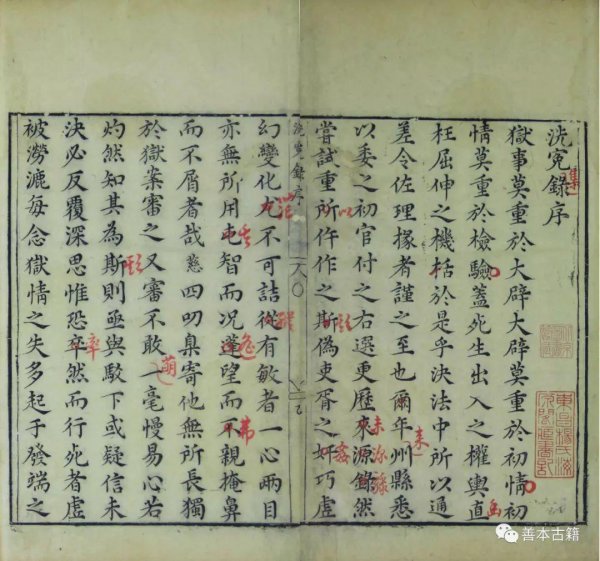 洗冤錄序
集
獄事莫重於大辟大辟莫重於初情初
情莫重於檢驗蓋死生出入之權輿直
枉屈伸之機栝於是乎決法中所以通
差令佐理掾者謹之至也爾年州縣悉
以委之初官付之右選更歷來源錄然
嘗試重所仵作之斯偽吏胥之奸巧虛
以
欺
姦
洗冤錄序
幻變化尤不可詰從有敏者一心兩目
亦無所用屯智而况蓬望而不親掩鼻
其
弗
而不屑者哉慈四叨臬寄他無所長獨
於獄案審之又審不敢一毫慢易心若
萌
灼然知其為斯則亟與駁下或疑信未
欺
決必反覆深思惟恐卒然而行死者虛
卒
被澇漉每念獄情之失多起于發端之
善本古籍